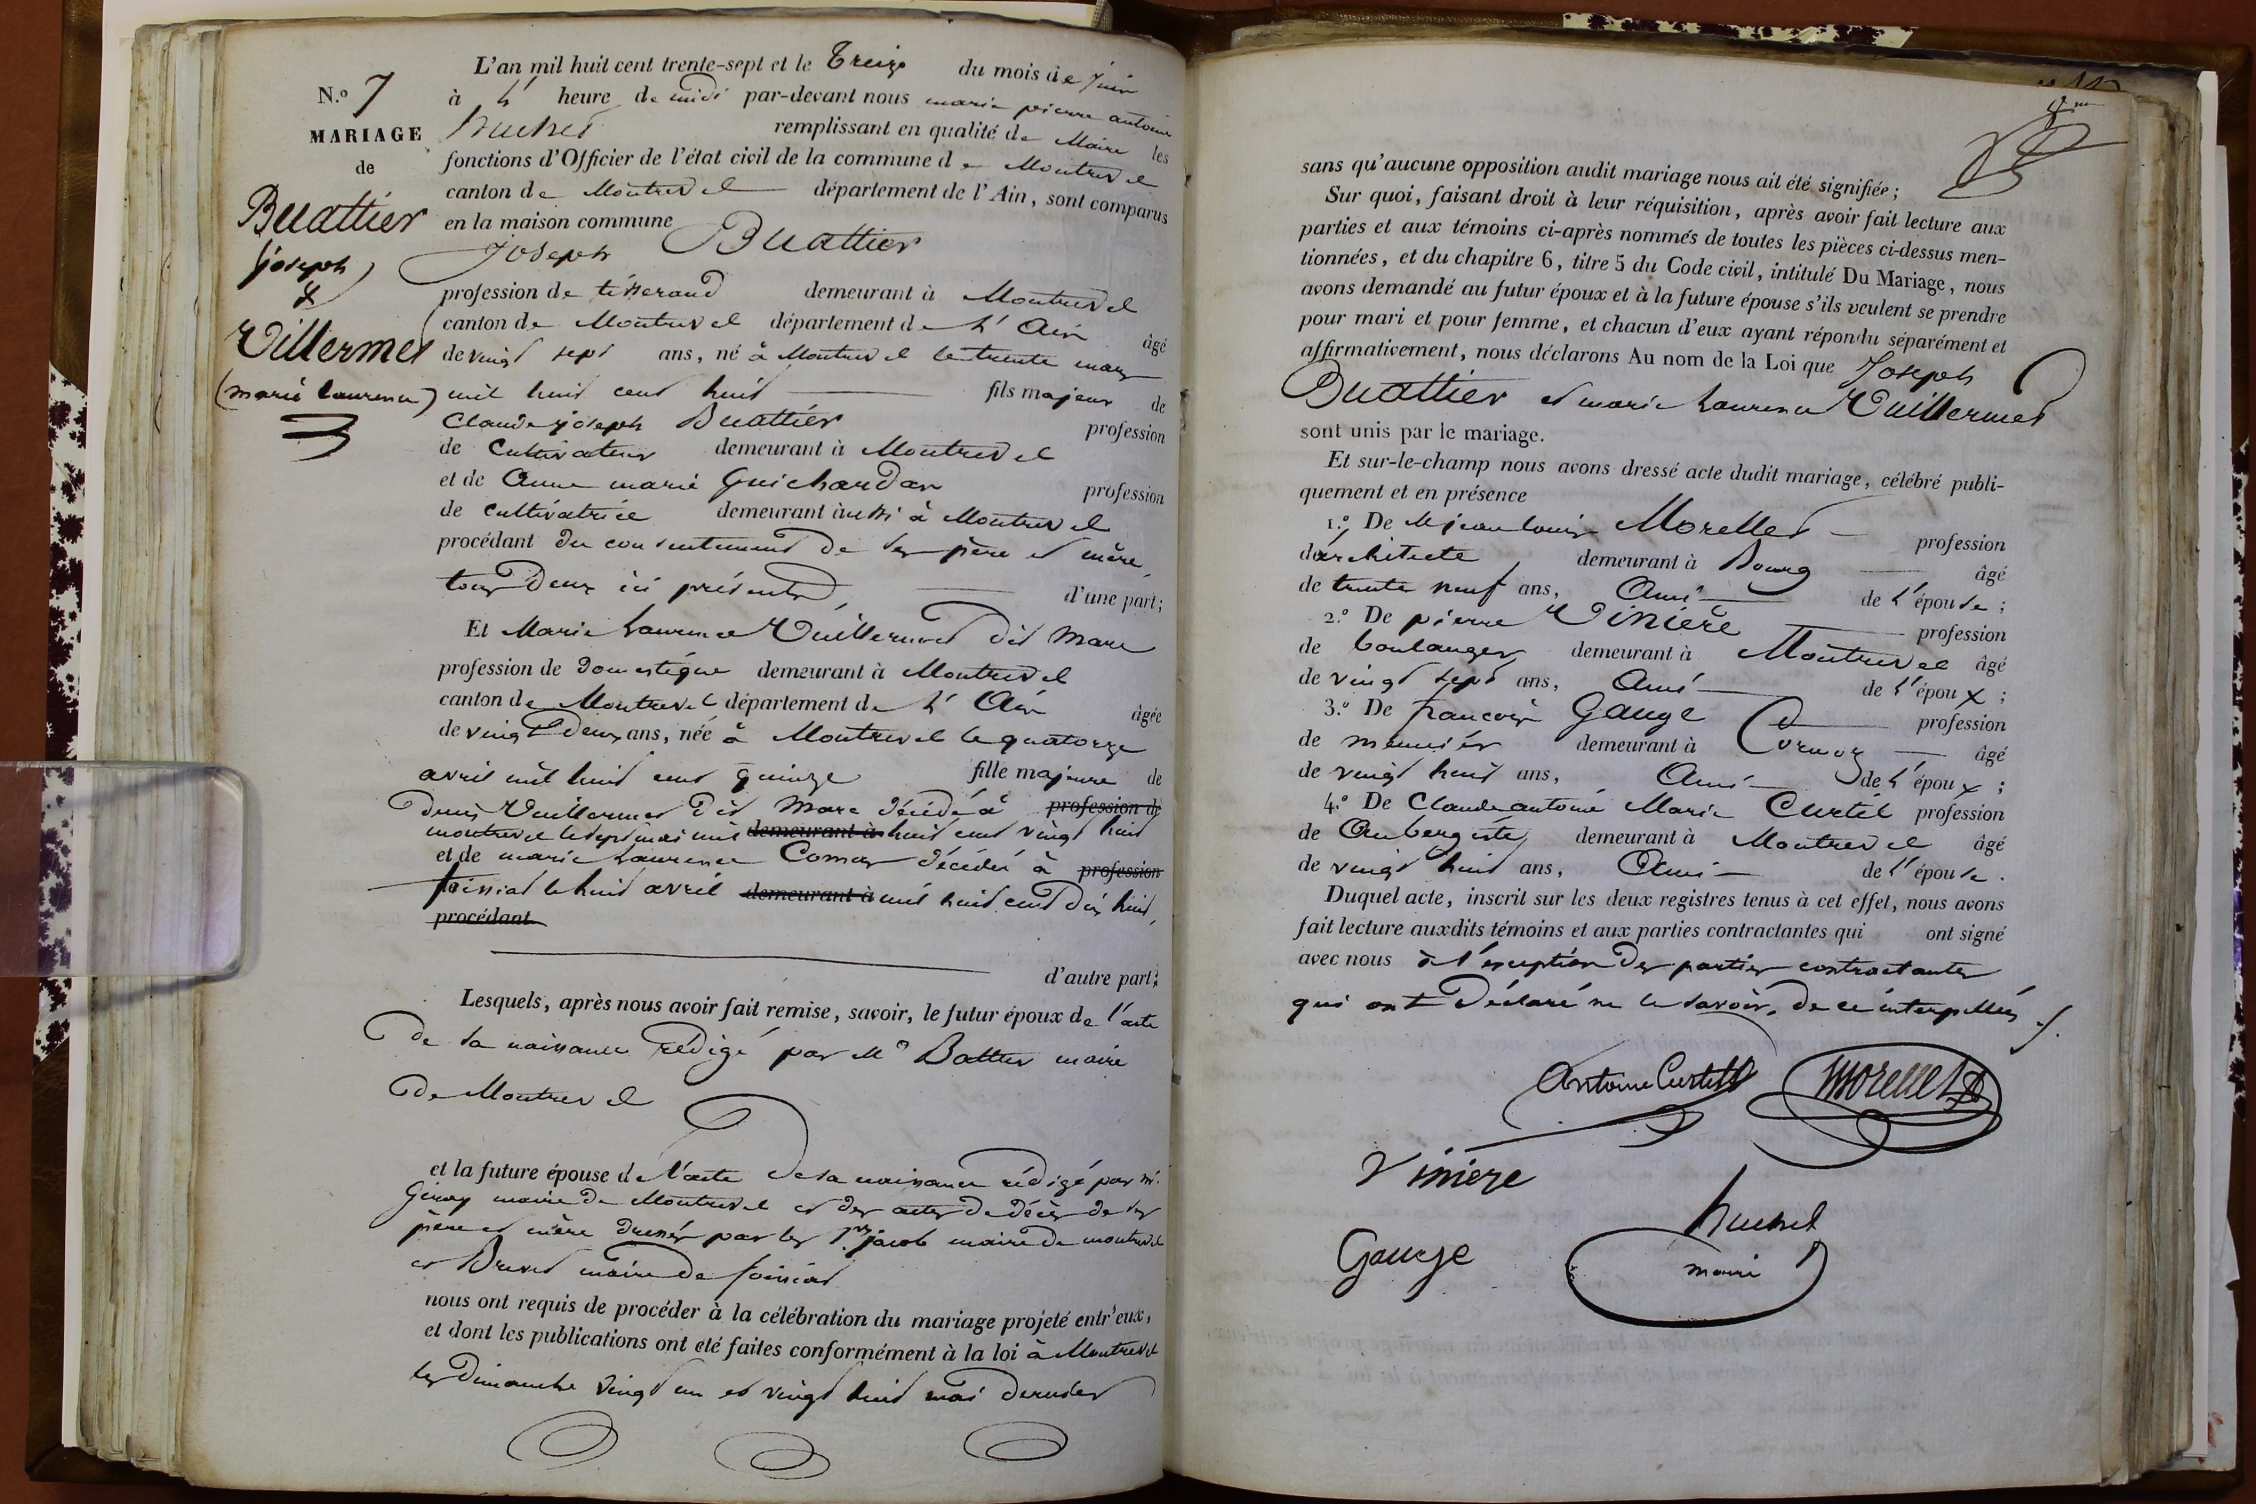 N.º 7
MARIAGE
de
Buattier
(joseph)
&
Vuillermet
(marie laurence)
L'an mil huit cent trente-sept et le Treize du mois de juin
à l' heure de midi par-devant nous marie pierre antoine
huchet remplissant en qualité de Maire les
fonctions d'Officier de l'état civil de la commune de Montrevel
canton de Montrevel département de l'Ain, sont comparus
en la maison commune
Joseph Buattier
profession de tisserand demeurant à Montrevel
canton de Montrevel département de l'Ain âgé
de vingt sept ans, né à Montrevel le trente mars
mil huit cent huit fils majeur de
Claude joseph Buattier profession
de Cultivateur demeurant à Montrevel
et de Anne marie Guichardan profession
de cultivatrice demeurant aussi à Montrevel
procédant du consentement de ses père et mère,
tous Deux ici présents d'une part;
Et Marie Laurence Vuillermet dit Marc
profession de domestique demeurant à Montrevel
canton de Montrevel département de l'Ain âgée
de vingt Deux ans, née à Montrevel le quatorze
avril mil huit cent quinze fille majeure de
Denis Vuillermet dit Marc décédé à profession de
montrevel le sept mai mil demeurant à huit cent vingt huit
et de marie Laurence Comas décédée à profession
foissiat le huit avril demeurant à mil huit cent dix huit,
procédant
d'autre part;
Lesquels, après nous avoir fait remise, savoir, le futur époux de l'acte
De sa naissance rédigé par Mr Batter maire
De Montrevel
et la future épouse de l'acte De sa naissance rédigé par mr.
Giroy maire de Montrevel et des actes de décès de ses
père et mère dressés par les srs. jacob maire de montrevel
et Brevet maire de foissiat
nous ont requis de procéder à la célébration du mariage projeté entr'eux,
et dont les publications ont été faites conformément à la loi à Montrevel
les Dimanche vingt un et vingt huit mai dernier
sans qu'aucune opposition audit mariage nous ait été signifiée;
Sur quoi, faisant droit à leur réquisition, après avoir fait lecture aux
parties et aux témoins ci-après nommés de toutes les pièces ci-dessus men-
tionnées, et du chapitre 6, titre 5 du Code civil, intitulé Du Mariage, nous
avons demandé au futur époux et à la future épouse s'ils veulent se prendre
pour mari et pour femme, et chacun d'eux ayant répondu séparément et
affirmativement, nous déclarons Au nom de la Loi que Joseph
Buattier et marie Laurence Vuillermet
sont unis par le mariage.
Et sur-le-champ nous avons dressé acte dudit mariage, célébré publi-
quement et en présence
1.º De M jean louis Morellet profession
d'architecte demeurant à Bourg âgé
de trente neuf ans, Ami de l'épouse;
2.º De pierre Vinière profession
de boulanger demeurant à Montrevel âgé
de vingt sept ans, Ami de l'époux;
3.º De françois Gauge profession
de meunier demeurant à Cormoz âgé
de vingt huit ans, Ami de l'époux;
4.º De Claude antoine Marie Curtil profession
de Aubergiste demeurant à Montrevel âgé
de vingt huit ans, Ami de l'épouse.
Duquel acte, inscrit sur les deux registres tenus à cet effet, nous avons
fait lecture auxdits témoins et aux parties contractantes qui ont signé
avec nous à l'exception des parties contractantes
qui ont Déclaré ne le savoir, de ce interpellés
Antoine Curtil Morellet
Viniere
huchet
Gauge maire